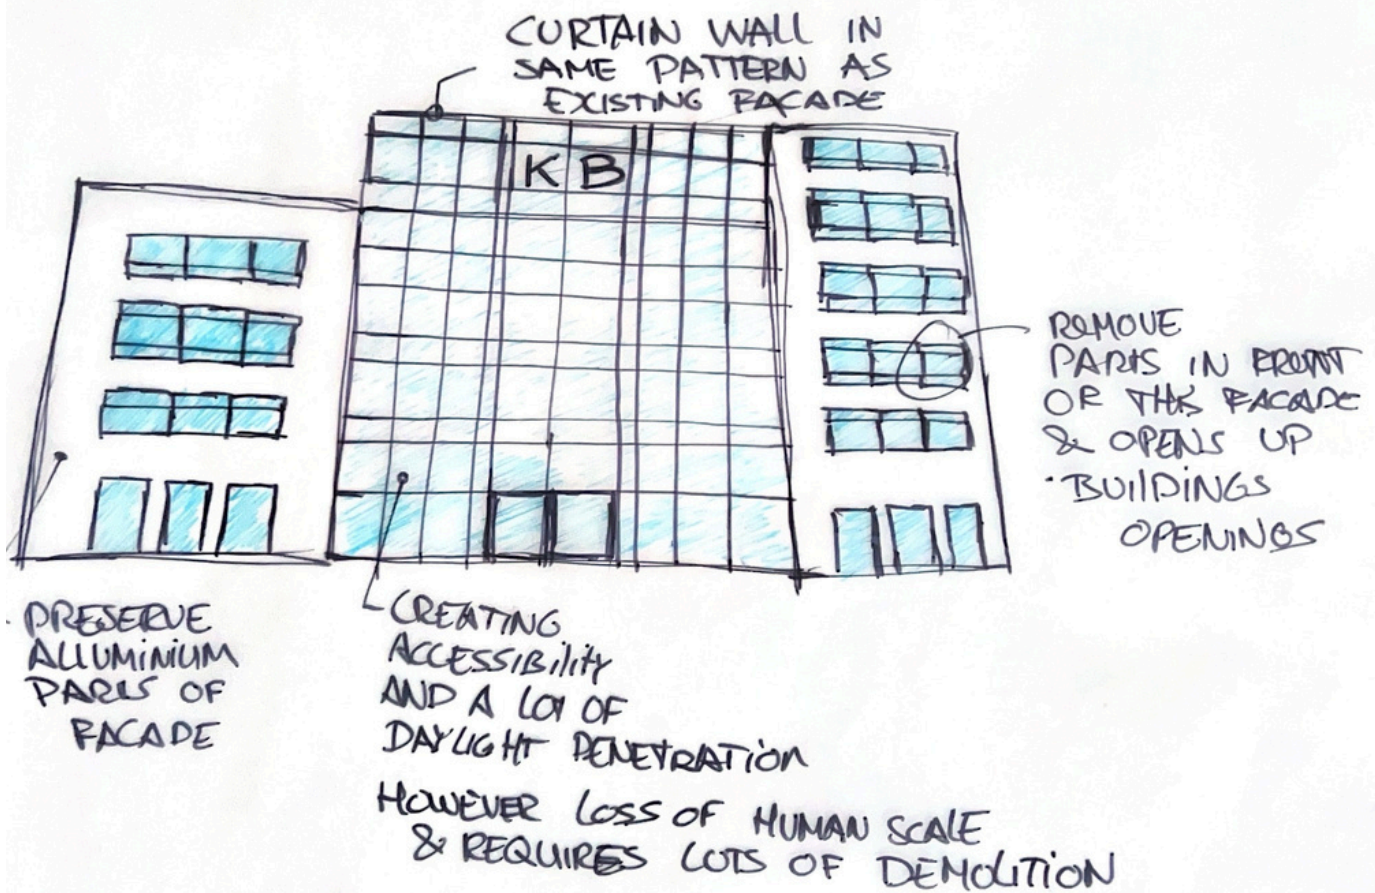 CURTAIN WALL IN
SAME PATTERN AS
EXISTING FACADE
KB
REMOVE
PARTS IN FRONT
OF THIS FACADE
& OPENS UP
BUILDINGS
OPENINGS
PRESERVE
ALLUMINIUM
PARTS OF
FACADE
CREATING
ACCESSIBILITY
AND A LOT OF
DAYLIGHT PENETRATION
HOWEVER LOSS OF HUMAN SCALE
& REQUIRES LOTS OF DEMOLITION